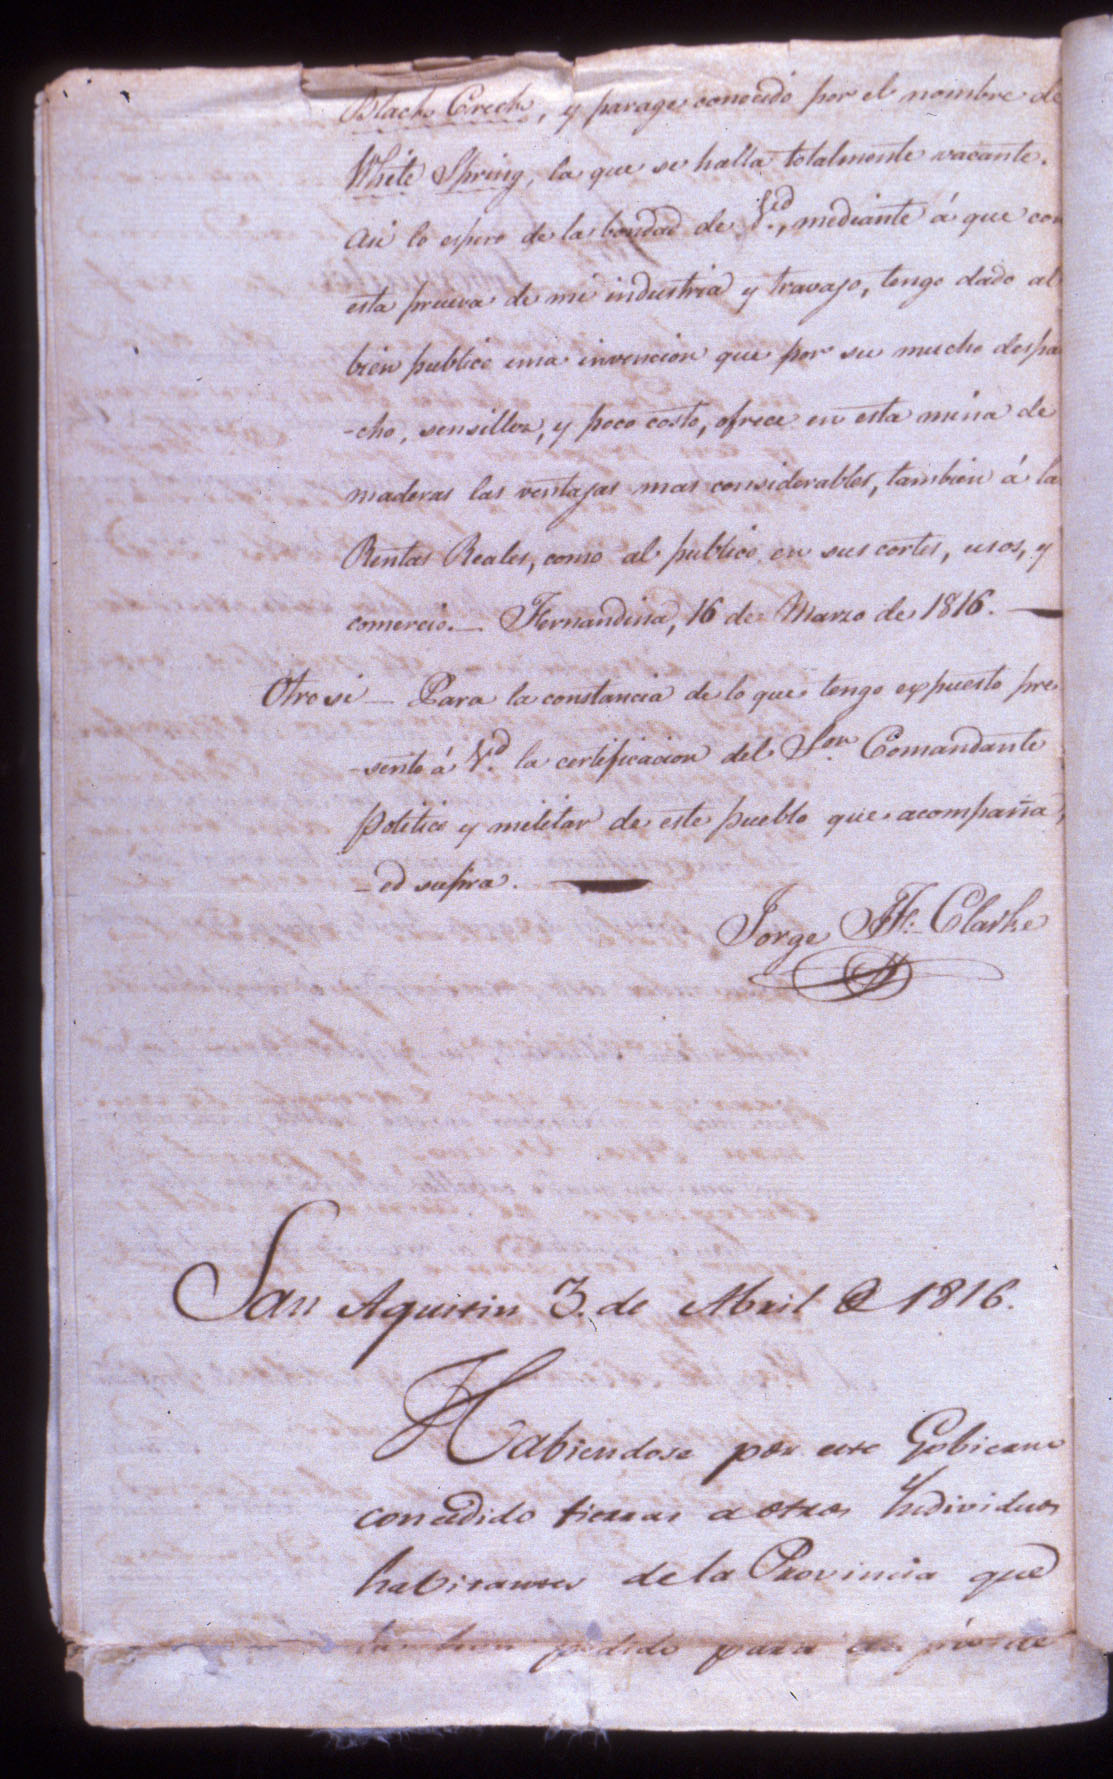 Black Creek, y parage conocido por el nombre de
White Spring, la que se halla totalmente vacante.
Asi lo espero de la bondad de Vd., mediante á que con
esta prueva de mi industria y travajo, tengo dado al
bien publico una invencion que por su mucho despa
-cho, sensillez, y poco costo, ofrece en esta mina de
maderas las ventajas mas considerables, tambien á la
Rentas Reales, como al publico en sus cortes, usos, y
comercio. — Fernandina, 16 de Marzo de 1816. —
Otro si — Para la constancia de lo que tengo expuesto pre
-sento á Vd. la certificacion del Sor. Comandante
politico y militar de este pueblo que acompaña,
-ed supra. —
Jorge J. F. Clarke
San Agustin 3. de Abril de 1816.
Habiendose por este Gobierno
concedido tierras a otros Individuos
habitantes de la Provincia que
pedido para